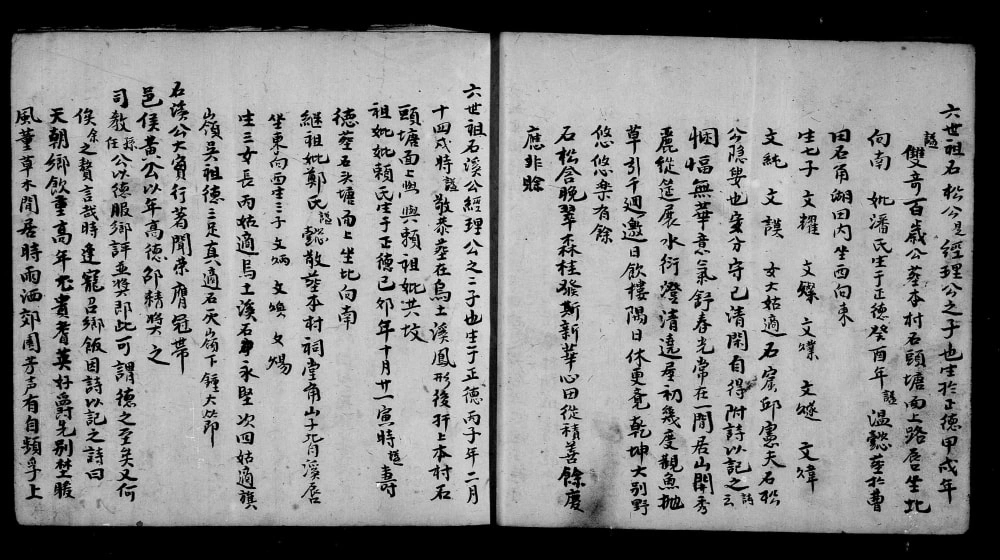 六世祖石松公是經理公之子也生於正德甲戌年
謚雙奇百歲公葬本村石頭塘面上路唇坐北
向南 妣潘氏生于正德癸酉年謚温懿葬於曹
田石角湖田內坐西向東
生七子 文耀 文燦 文㷸 文燧 文煒
文純 文謨 女大姑適石窟邱憲夫石松
公隱娶也安分守己清閑自得附詩以記之詩云
悃愊無華意氣舒春光常在一間居山開秀
麗從筵展水衍澄清遶屋初幾度觀魚拋
草引千迴邀日飲樓隅日休更竟乾坤大別野
悠悠樂有餘
石松含晚翠森桂發新華心田從積善餘慶
應非賒
六世祖石溪公經理公之二子也生于正德丙子年二月
十四戌時謚敦恭葬在烏土溪鳳形後扦上本村石
頭塘面上與賴祖妣共墳
祖妣賴氏生于正德己卯年十月廿一寅時謚壽
德葬石头塘面上坐北向南
繼祖妣鄭氏謚懿敬葬本村祠堂角山子背溪唇
坐東向西生三子 文炳 文煥 文煬
生三女長丙姑適烏土溪石永堅次四姑適旗
嶺吳祖德三足真適石天嶺下鍾大節
石溪公大賓行著聞榮膺冠帶
邑侯黃公以年高德邵精獎之
司教孫任公以德服鄉評並獎即此可謂德之至矣又何
俟余之贅言哉時逢寵召鄉飯因詩以記之詩曰
天朝鄉飲重高年尤貴耆英好爵先別墅暖
風薰草木閒居時雨洒郊園芳声有自頻孚上